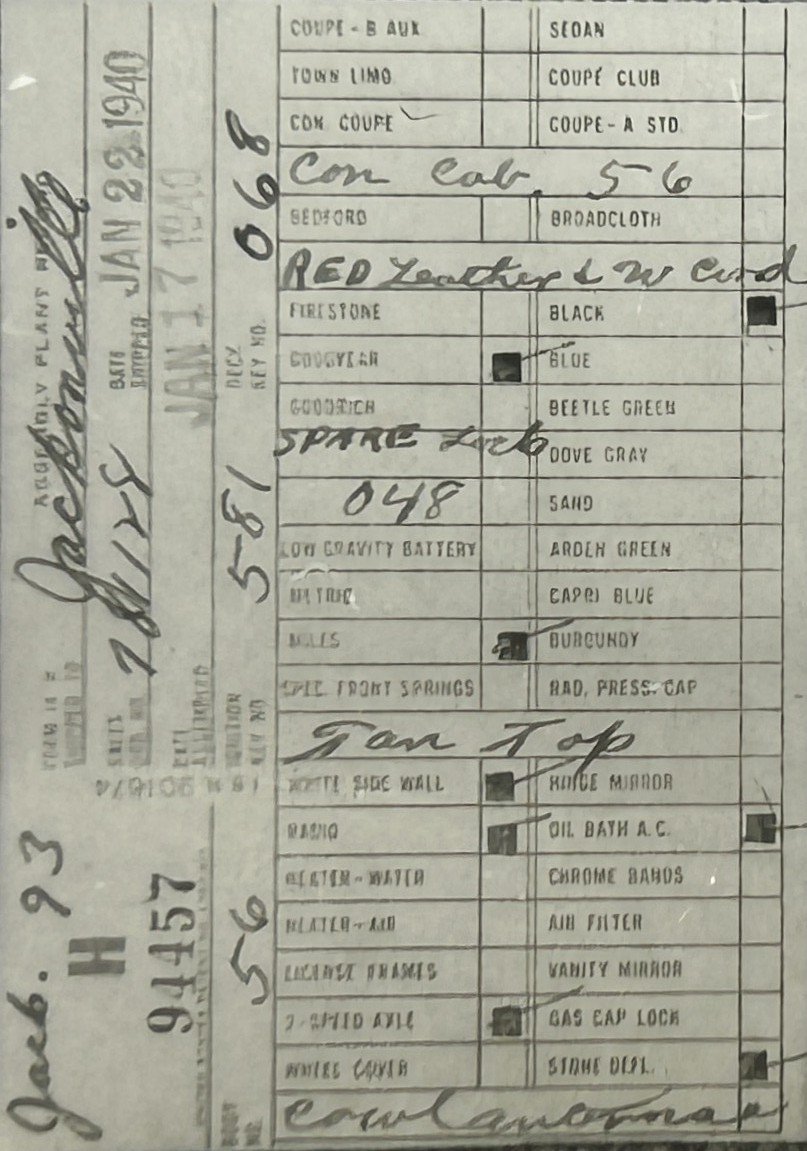 COUPE - B AUX SEDAN
TOWN LIMO COUPÉ CLUB
CON. COUPE COUPE - A STD.
Con Cab. 56
BEDFORD BROADCLOTH
RED Leather & W Cord
FIRESTONE BLACK
GOODYEAR BLUE
GOODRICH BEETLE GREEN
SPARE Lock DOVE GRAY
048 SAND
LOW GRAVITY BATTERY ARDEN GREEN
METRIC CAPRI BLUE
MILES BURGUNDY
SPEC. FRONT SPRINGS RAD. PRESS. CAP
Tan Top
WHITE SIDE WALL HINGE MIRROR
RADIO OIL BATH A.C.
HEATER - WATER CHROME BANDS
HEATER - AIR AIR FILTER
LICENSE FRAMES VANITY MIRROR
2-SPEED AXLE GAS CAP LOCK
STONE DEFL.
ASSEMBLY PLANT
Jacksonville
DATE SHIPPED JAN 22 1940
JAN 17 1940
DECK KEY NO. 068
IGNITION KEY NO 581
BODY NO. 56
Jack. 93
H
94457